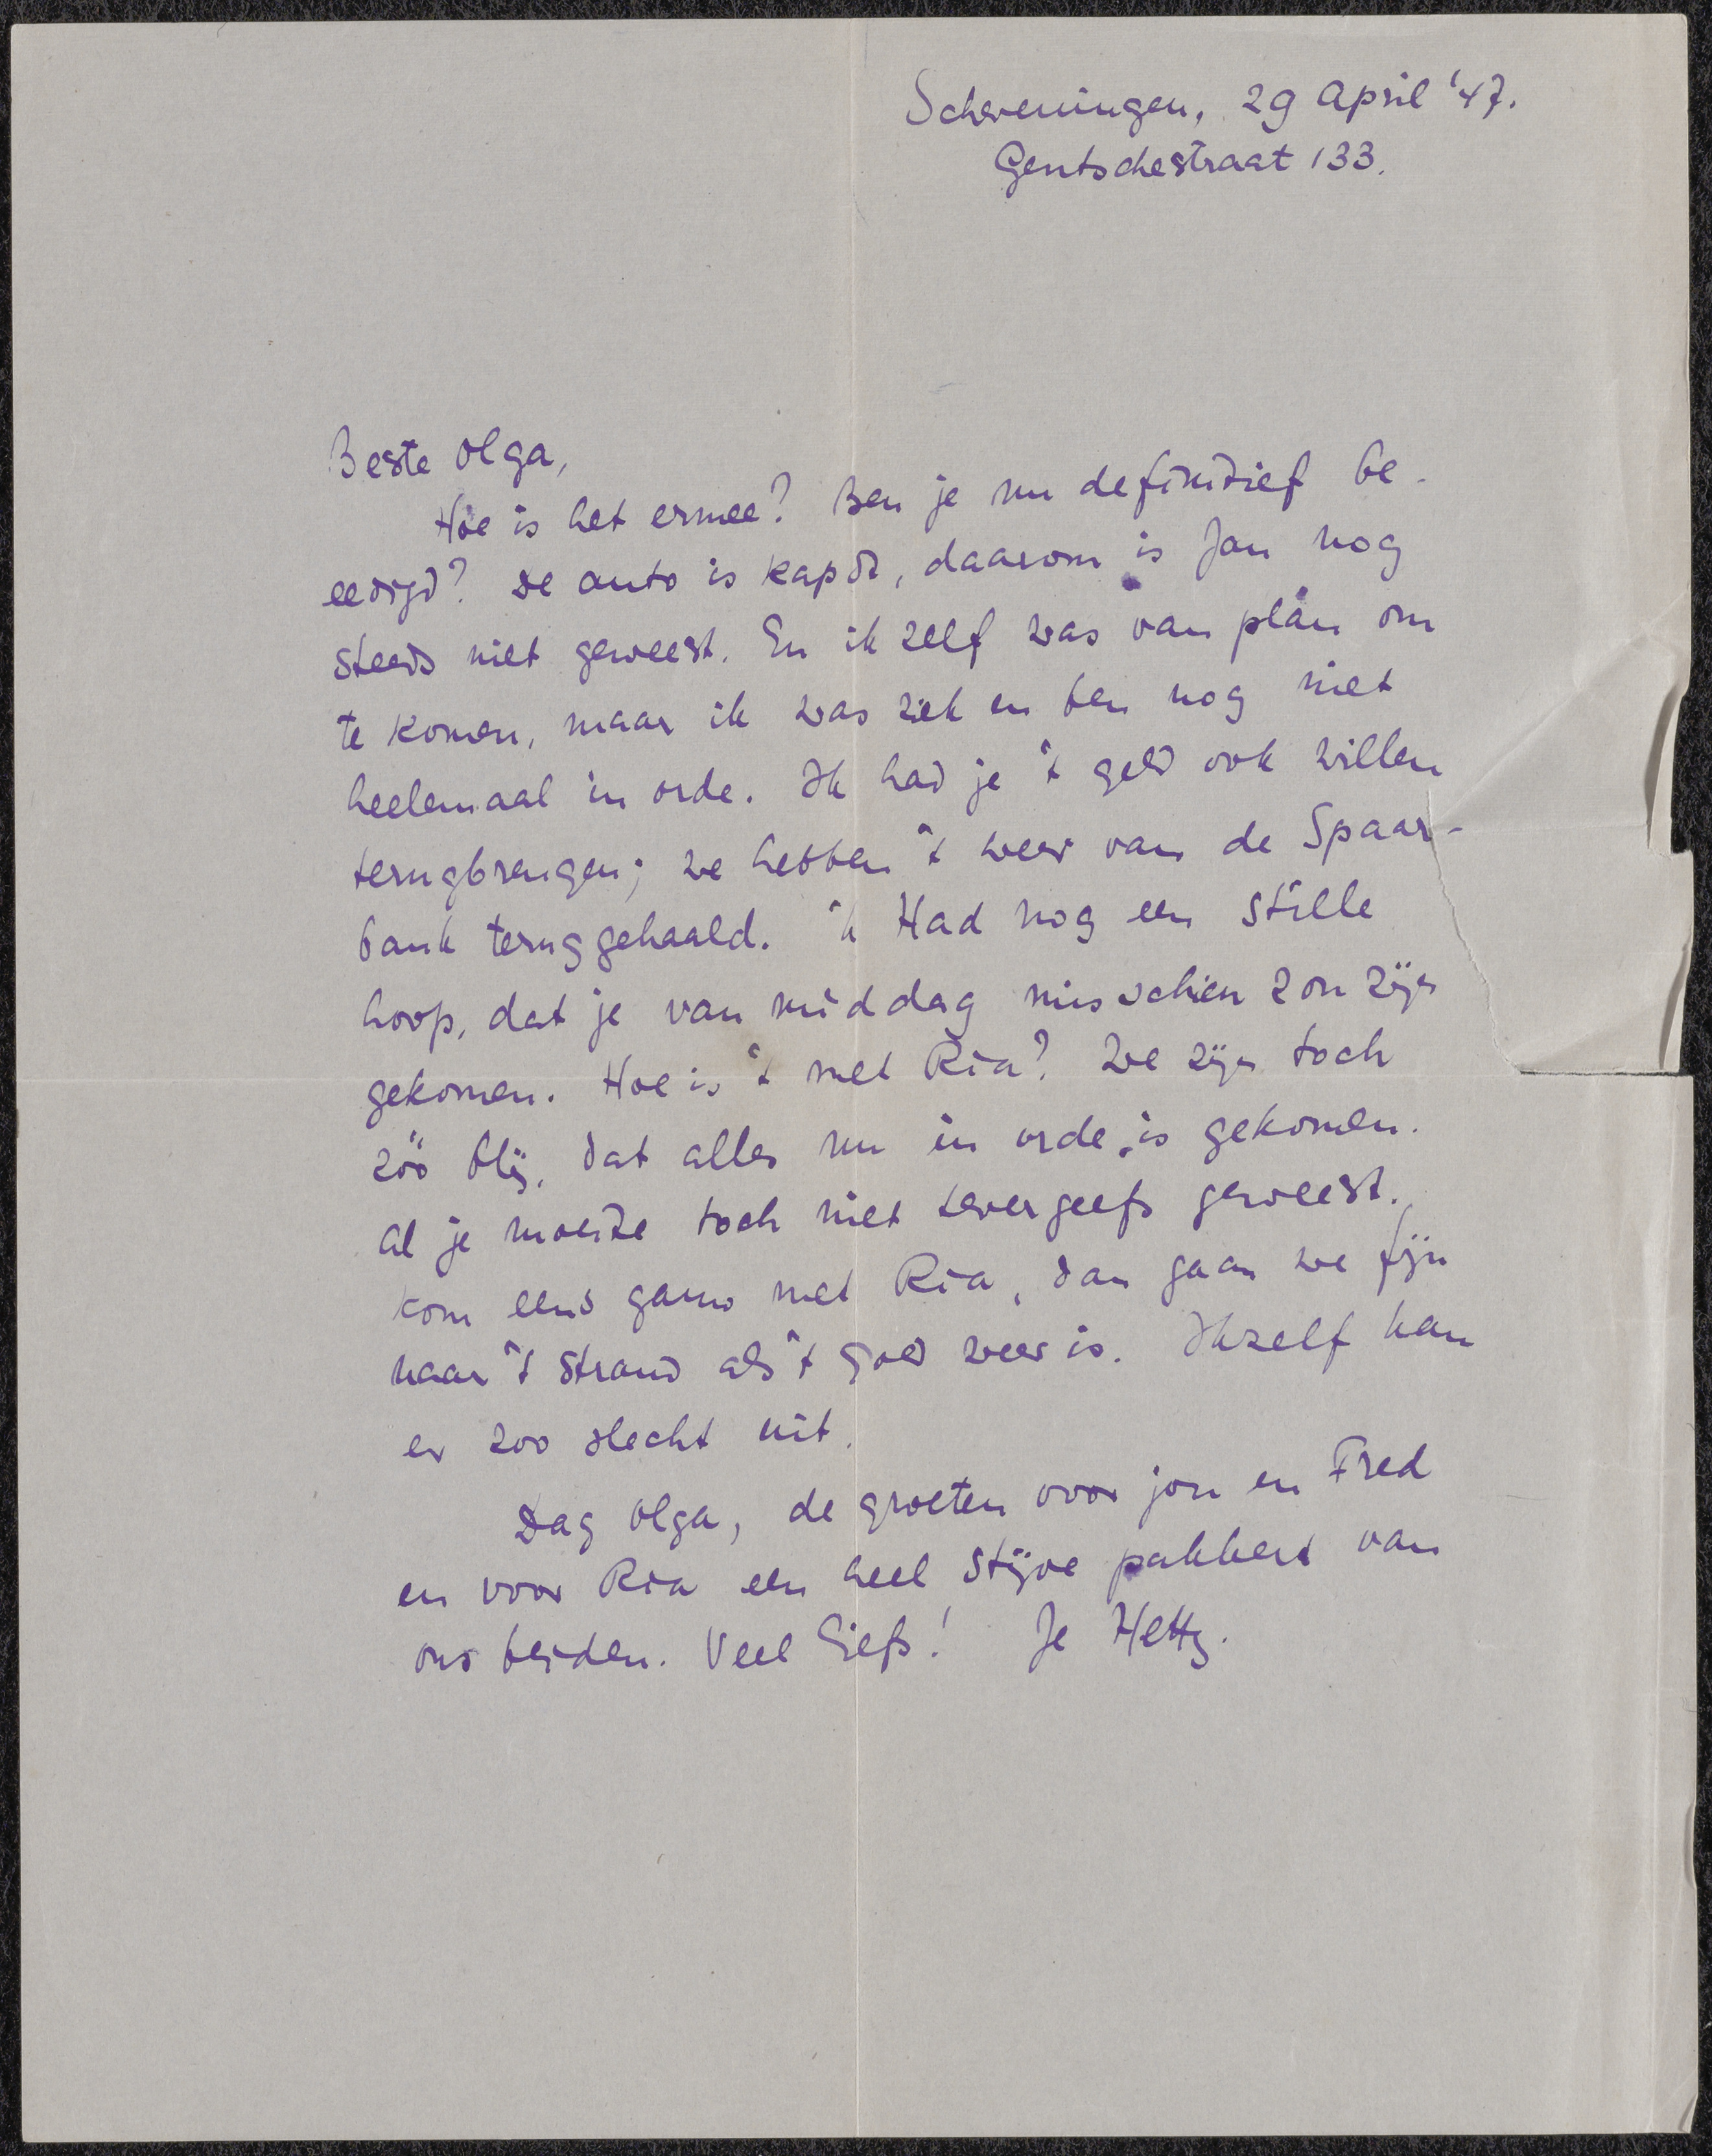 Scheveningen, 29 April '47.
Gentschestraat 133.
Beste Olga,
Hoe is het ermee? Ben je nu definitief be-
eedigd? De auto is kapot, daarom is Jan nog
steeds niet geweest. En ik zelf was van plan om
te komen, maar ik was ziek en ben nog niet
heelemaal in orde. Ik had je 't geld ook willen
terugbrengen; we hebben 't weer van de Spaar-
bank teruggehaald. 'k Had nog een stille
hoop, dat je van middag misschien zou zijn
gekomen. Hoe is 't met Ria? We zijn toch
zóó blij, dat alles nu in orde is gekomen.
Al je moeite toch niet tevergeefs geweest.
Kom eens gauw met Ria, dan gaan we fijn
naar 't strand als 't goed weer is. Ikzelf kan
er zoo slecht uit.
Dag Olga, de groeten voor jou en Fred
en voor Ria een heel stijve pakkerd van
ons beiden. Veel liefs! Je Hetty.